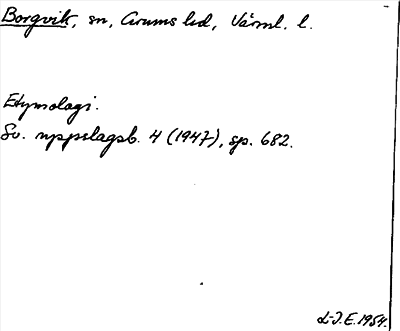 Borgvik, sn, Grums hd, Värml. l.
Etymologi.
Sv. uppslagsb. 4 (1947), sp. 682.
L-J.E. 1954.